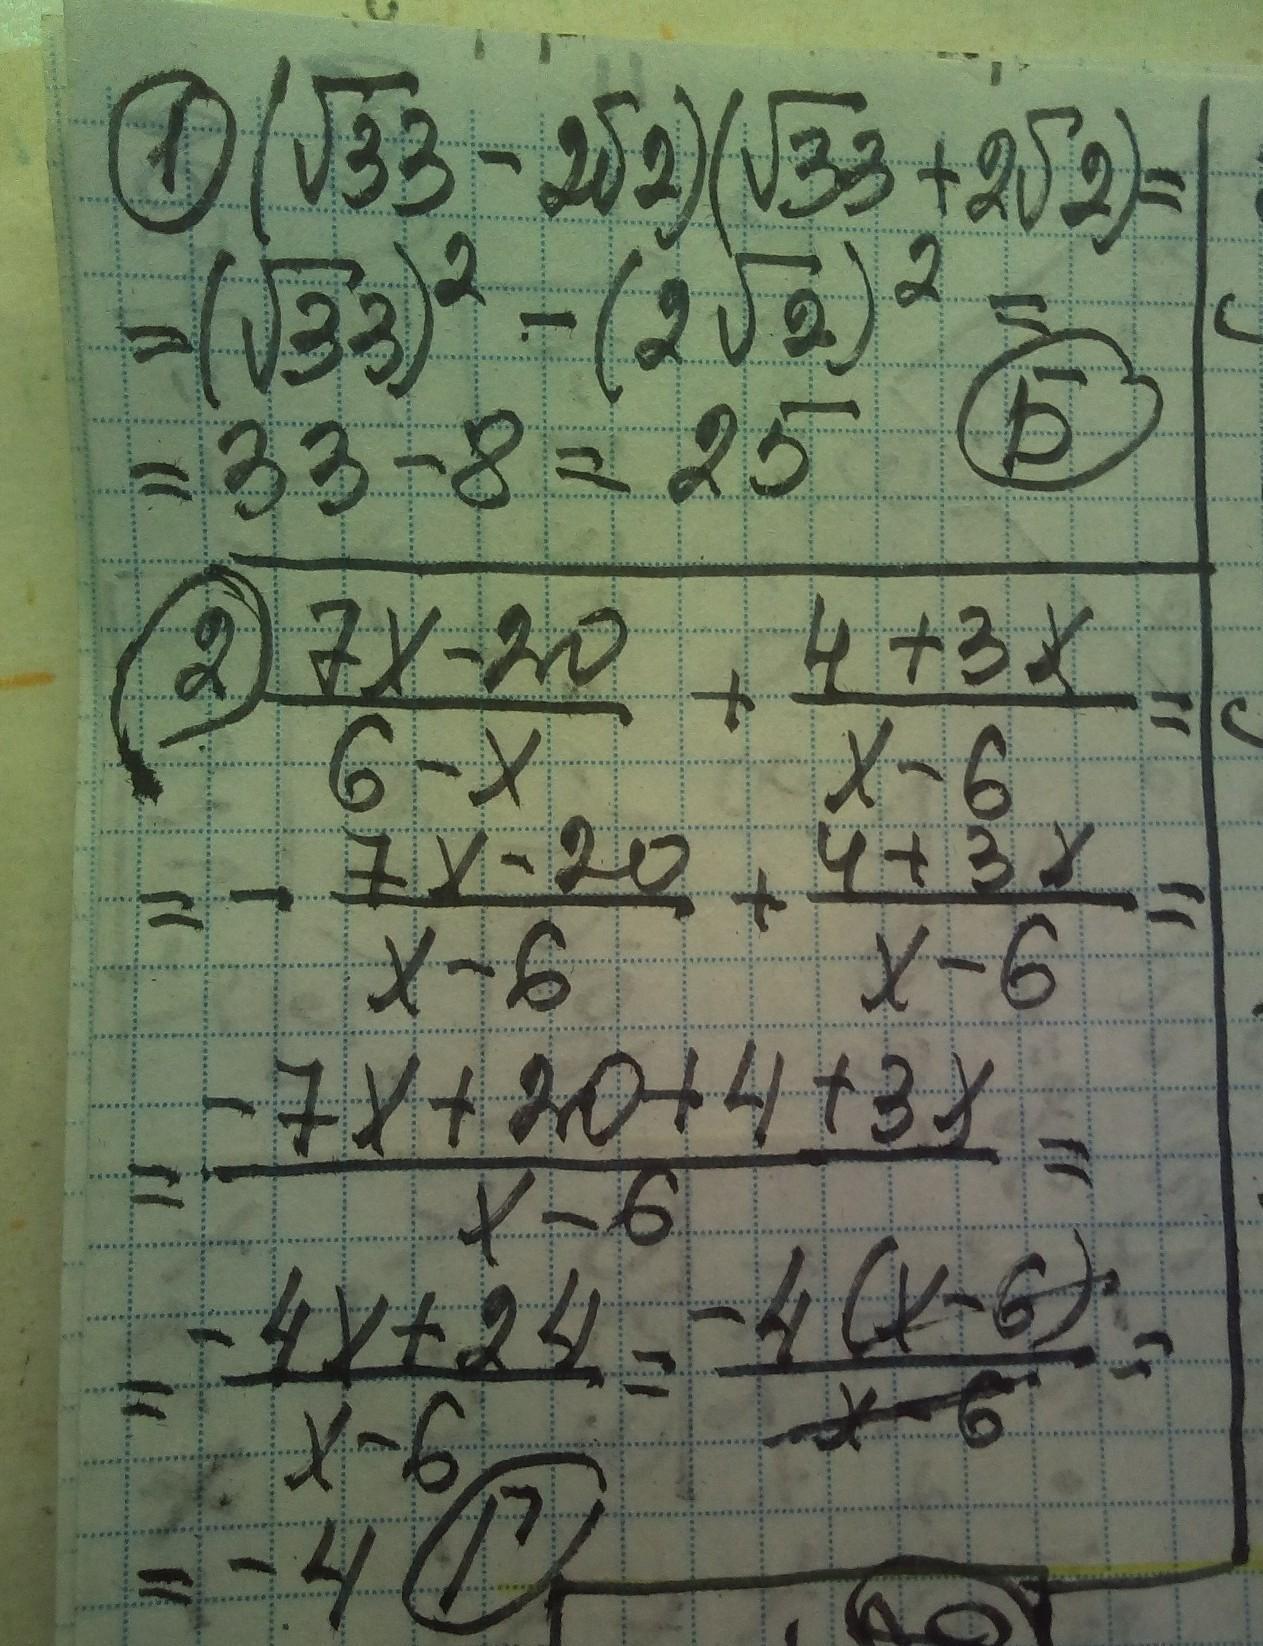 ① (√33 - 2√2)(√33 + 2√2) =
= (√33)² - (2√2)² =
= 33 - 8 = 25 Б
② (7x - 20)/(6 - x) + (4 + 3x)/(x - 6) =
= - (7x - 20)/(x - 6) + (4 + 3x)/(x - 6) =
= (-7x + 20 + 4 + 3x)/(x - 6) =
= (-4x + 24)/(x - 6) = (-4(x - 6))/(x - 6) =
= -4 Г